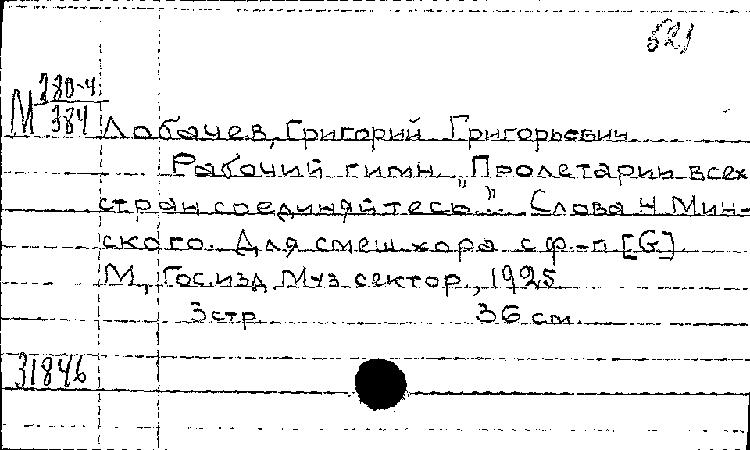 521
М 280-4/384
Лобачев, Григорий Григорьевич
Рабочий гимн „Пролетарии всех
стран соединяйтесь". Слова Н Мин-
ского. Для смеш хора с ф-п [G]
М, Гос.изд Муз сектор, 1925
3 стр. 36 см.
31846